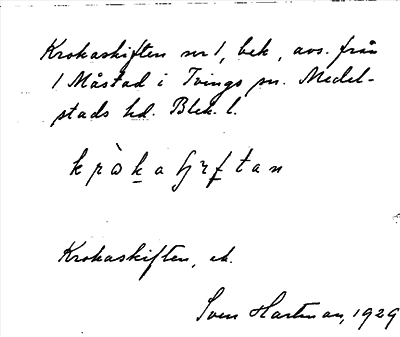 Krokaskiften nr 1, bek, avs. från
1 Måstad i Tvings sn. Medel-
stads hd. Blek. l.
kròka ſjɤftan
Krokaskiften, ek.
Sven Hartman, 1929